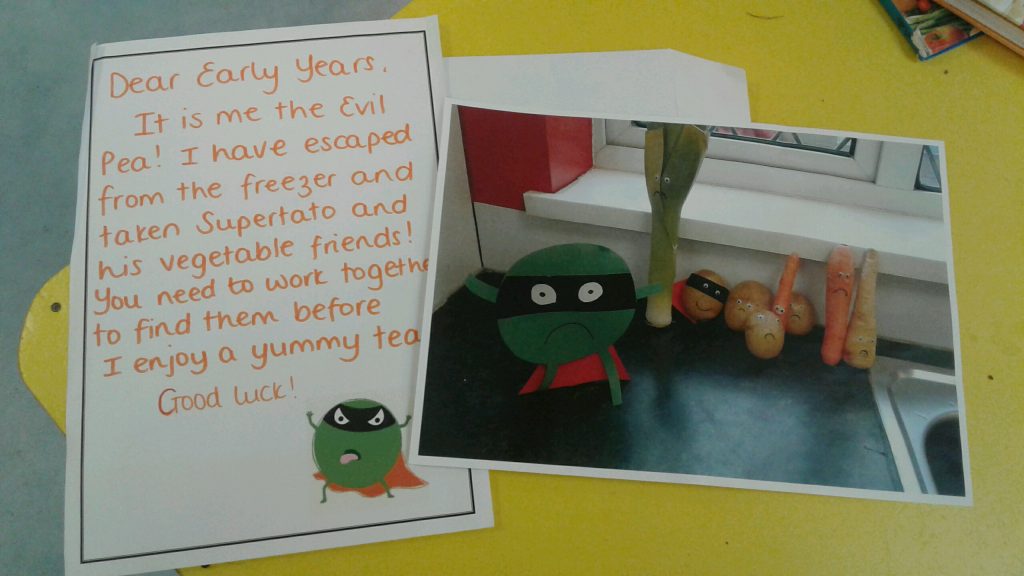 Dear Early Years,
It is me the Evil
Pea! I have escaped
from the freezer and
taken Supertato and
his vegetable friends!
You need to work togethe
to find them before
I enjoy a yummy tea
Good luck!